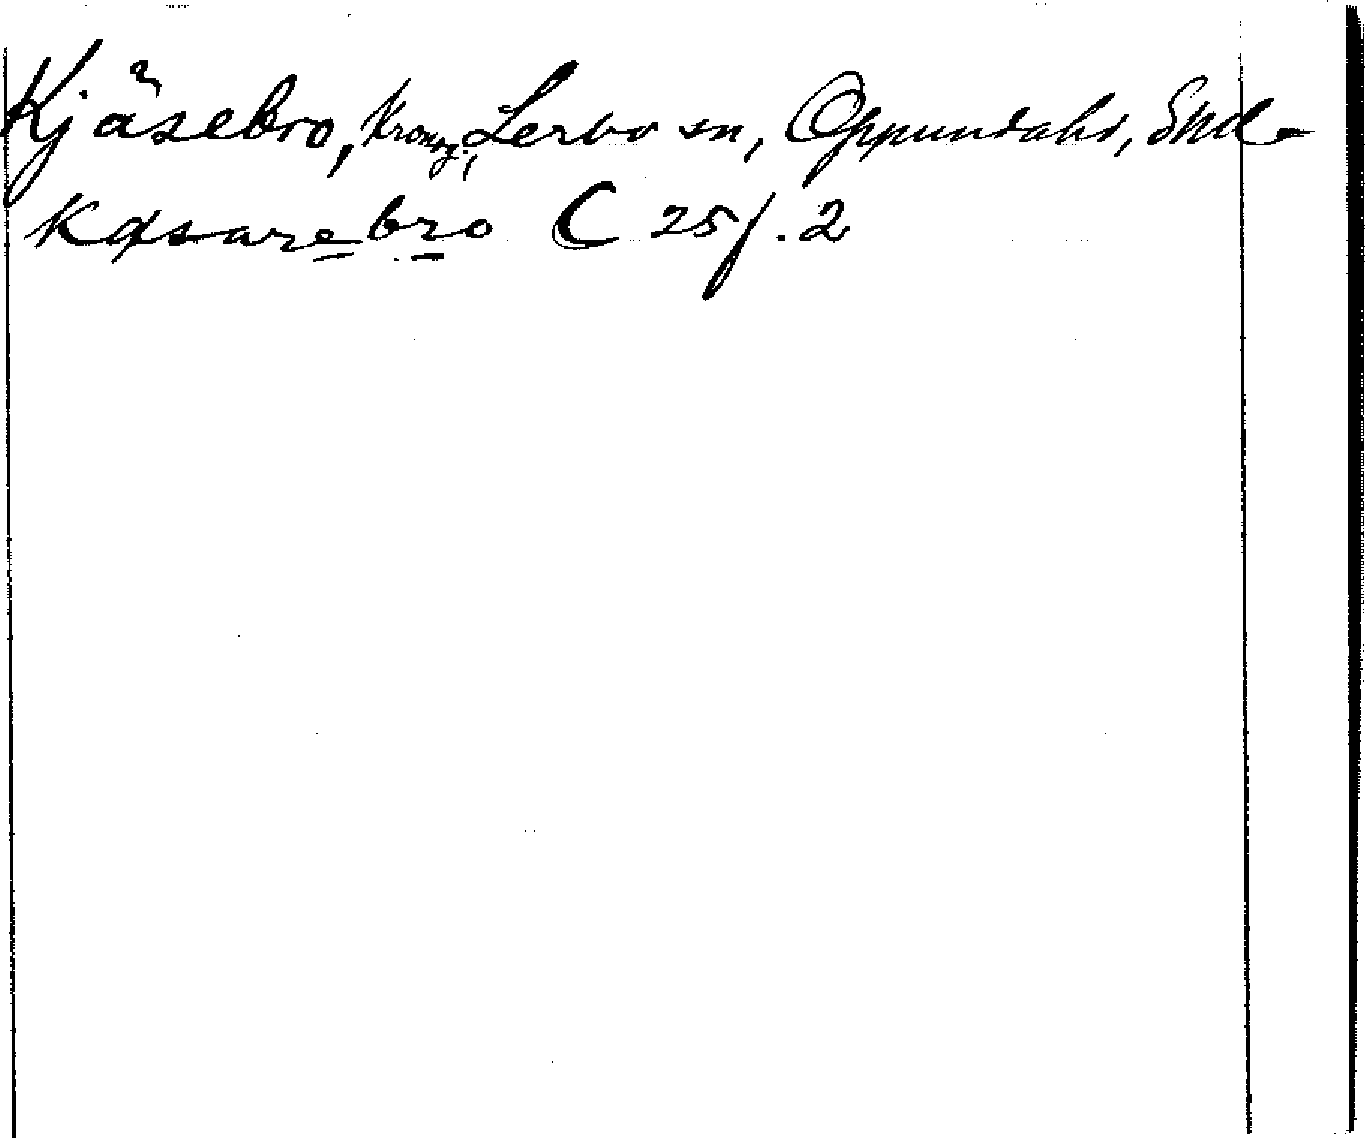 Kjäsebro, krong., Lerbo sn, Oppundahs, Smd
Kæsarebro C 25/. 2